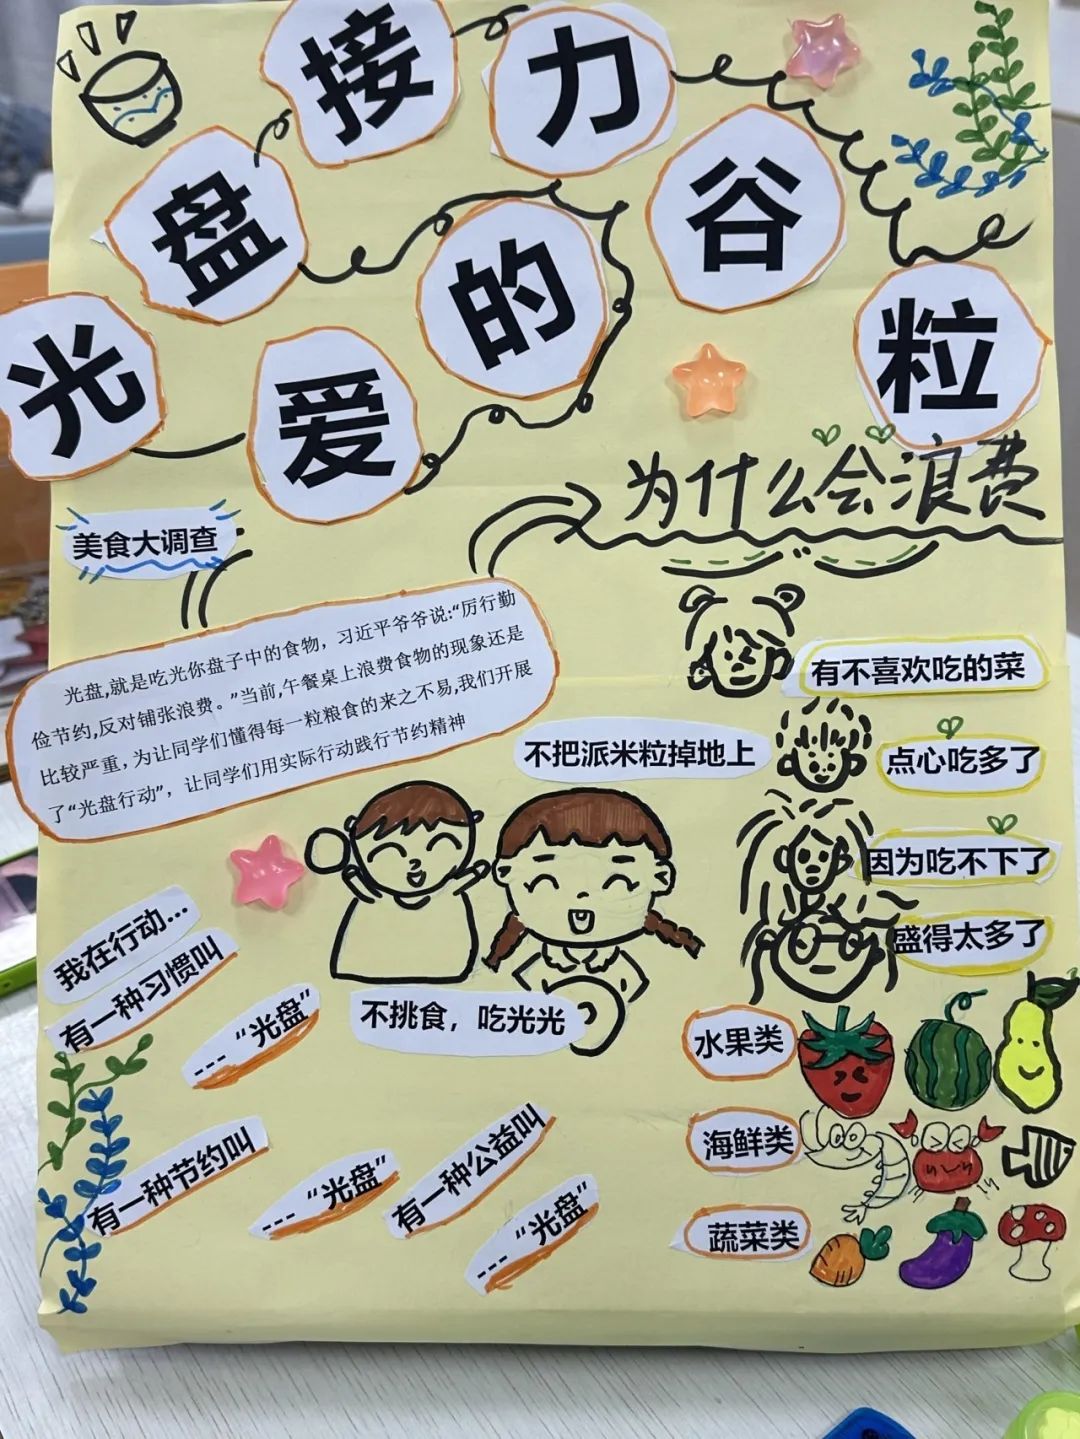 光盘接力
爱的谷粒
为什么会浪费
美食大调查
光盘,就是吃光你盘子中的食物，习近平爷爷说:“厉行勤
俭节约,反对铺张浪费。”当前,午餐桌上浪费食物的现象还是
比较严重，为让同学们懂得每一粒粮食的来之不易,我们开展
了“光盘行动”，让同学们用实际行动践行节约精神
有不喜欢吃的菜
点心吃多了
因为吃不下了
盛得太多了
不把派米粒掉地上
不挑食，吃光光
我在行动...
有一种习惯叫
---“光盘”
有一种节约叫
---“光盘”
有一种公益叫
---“光盘”
水果类
海鲜类
蔬菜类